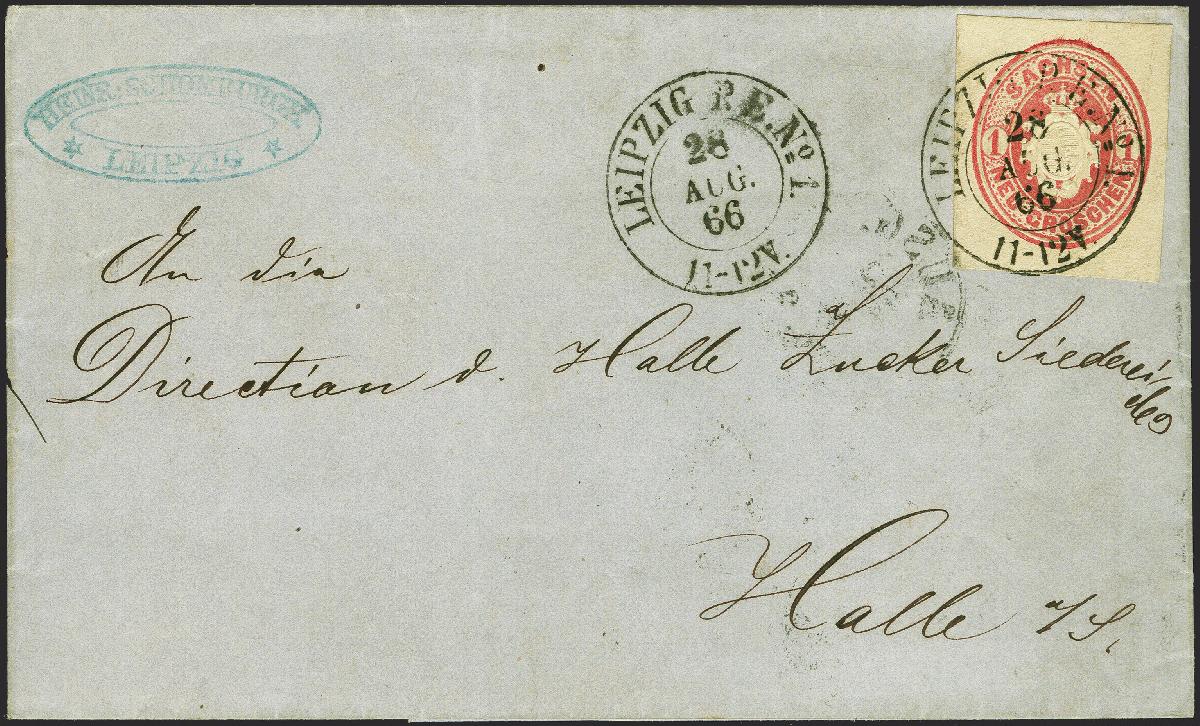 HEINR. SCHOMBURGK.
LEIPZIG
LEIPZIG P.E. No 1.
28
AUG.
66
11-12V.
SACHSEN
1 1
NEU-GROSCHEN
LEIPZIG P.E. No 1.
28
AUG.
66
11-12V.
An die
Direction d. Halle Zucker Siederei
Halle a/S.